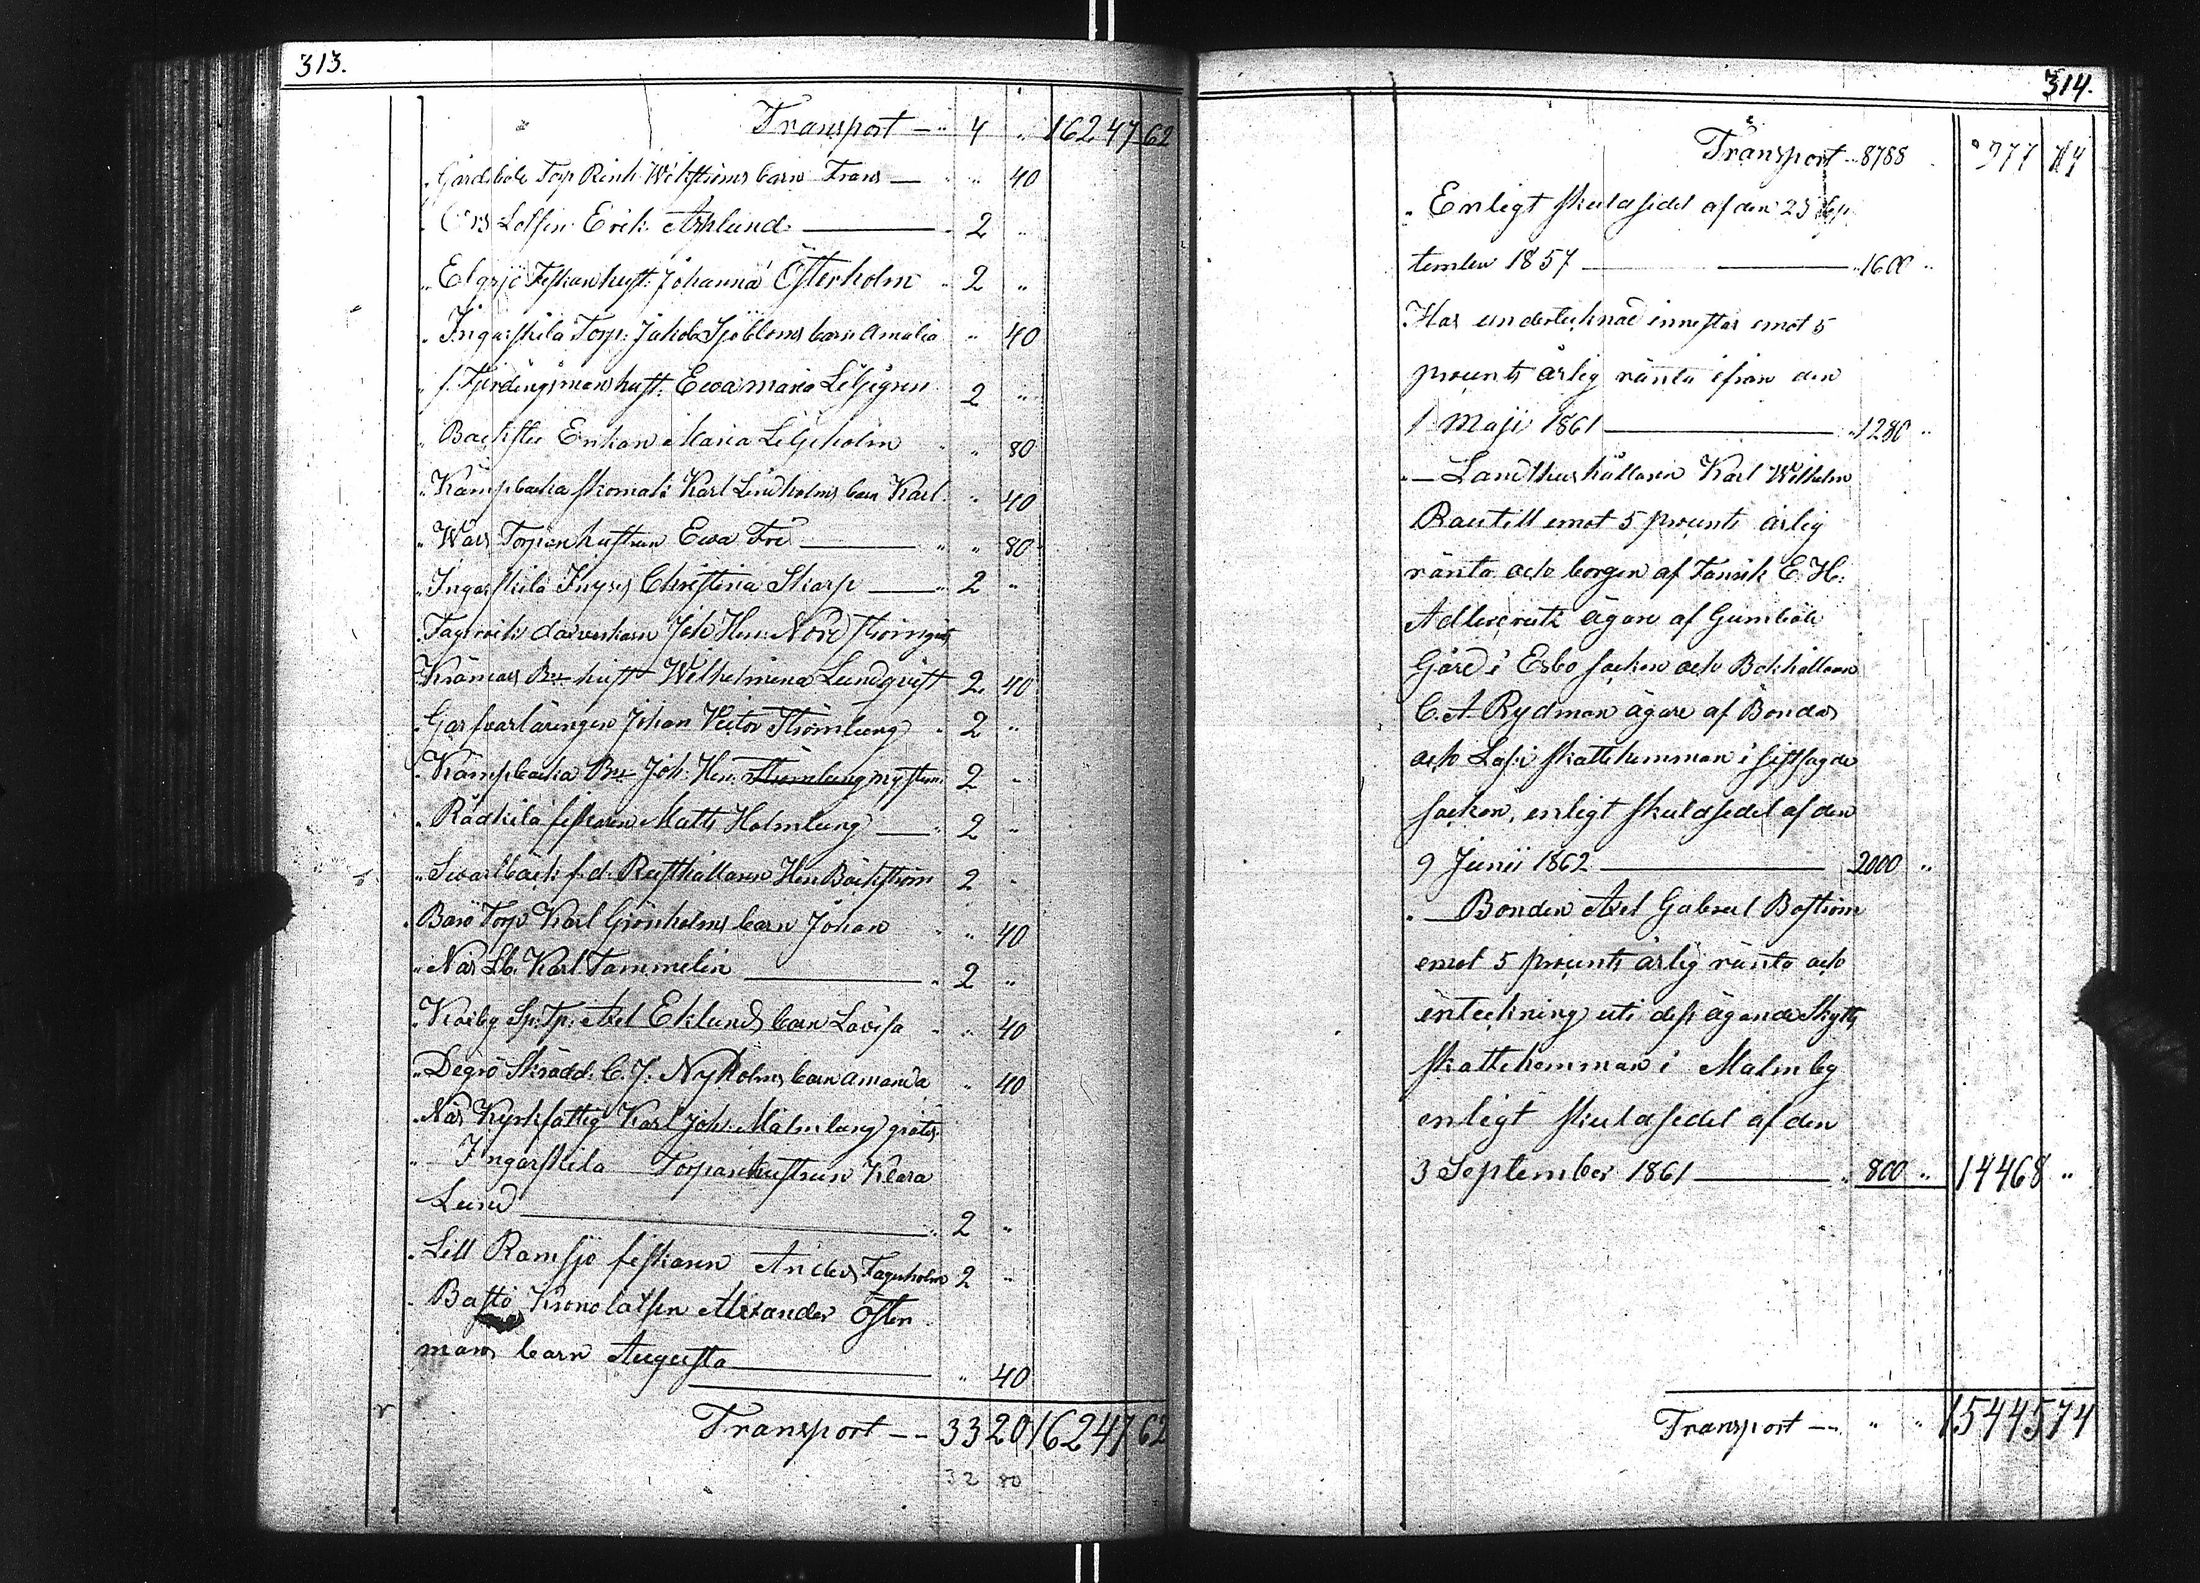 313.
Transport — " 4 " 16247 62
" Gårdsböle Torp. Rinh. Wikströms barn Frans — " " 40
" Lotsen Erik Asklund — " 2 "
" Elgsjö Fiskarhust: Johanna Österholm " 2 "
" Ingarskila Torp: Jakob Sjöbloms barn Amalia " 40
" f. Fjerdingsmans hust. Ewa Maria Liljegren 2 "
" Enkan Maria Liljeholm " " 80
" Kämpbacka skomak: Karl Lindholms barn Karl " 40
" Torparehustrun Ewa Fri — " " 80
" Ingarskila Inhyses Christina Skarp — " 2 "
" Fagervik Joh: Hen: Nordström gratis
" Hust Wilhelmina Lundqvist 2 40
" Garfvarlärlingen Johan Victor Strömberg " 2 "
" Kämpbacka Joh: Hen: Strömberg Nyström 2 "
" Rådkila fiskaren Matts Holmberg — " 2 "
" Svartbäck f.d. Rusthållaren Hen Bäckström 2 "
" Barö Torp Karl Grönholms barn Johan " " 40
" Näs Karl Tammelin — " 2 "
" Sp: Tp: Axel Eklunds barn Lovisa " " 40
" Degerö Skrädd: C. J. Nyholms barn Amanda " 40
" Näs Kyrkfattig Karl Joh: Malmberg gratis
" Ingarskila Torparehustrun Klara
Lund — " 2 "
" Lill Ramsjö fiskaren Anders Fagerholm 2 "
" Bastö Kronolotsen Alexander Öster
mans barn Augusta — " 40
Transport — — 33 20 16247 62
32 80
314.
Transport — 8788 " 977 74
" Enligt skuldsedel af den 23 Sep
tember 1857 — " 1600 "
Har undertecknad innestår emot 5
procents årlig ränta ifrån den
1 Maji 1861 — " 1280 "
" — Landthushållaren Karl Wilhelm
emot 5 procents årlig
ränta och borgen af Fänrik E. H:
Adlercreutz ägare af Gumböle
Gård i Esbo socken och Bokhållaren
C. A. Rydman ägare af Bondas
och skattehemman i Sjundeå
socken, enligt skuldsedel af den
9 Junii 1862 — 2000 "
" — Bonden Axel Gabriel Boström
emot 5 procents årlig ränta och
inteckning uti dess ägande Skytts
skattehemman i Malmby
enligt skuldsedel af den
3 September 1861 — " 800 " 14468 "
Transport — " " 15445 74